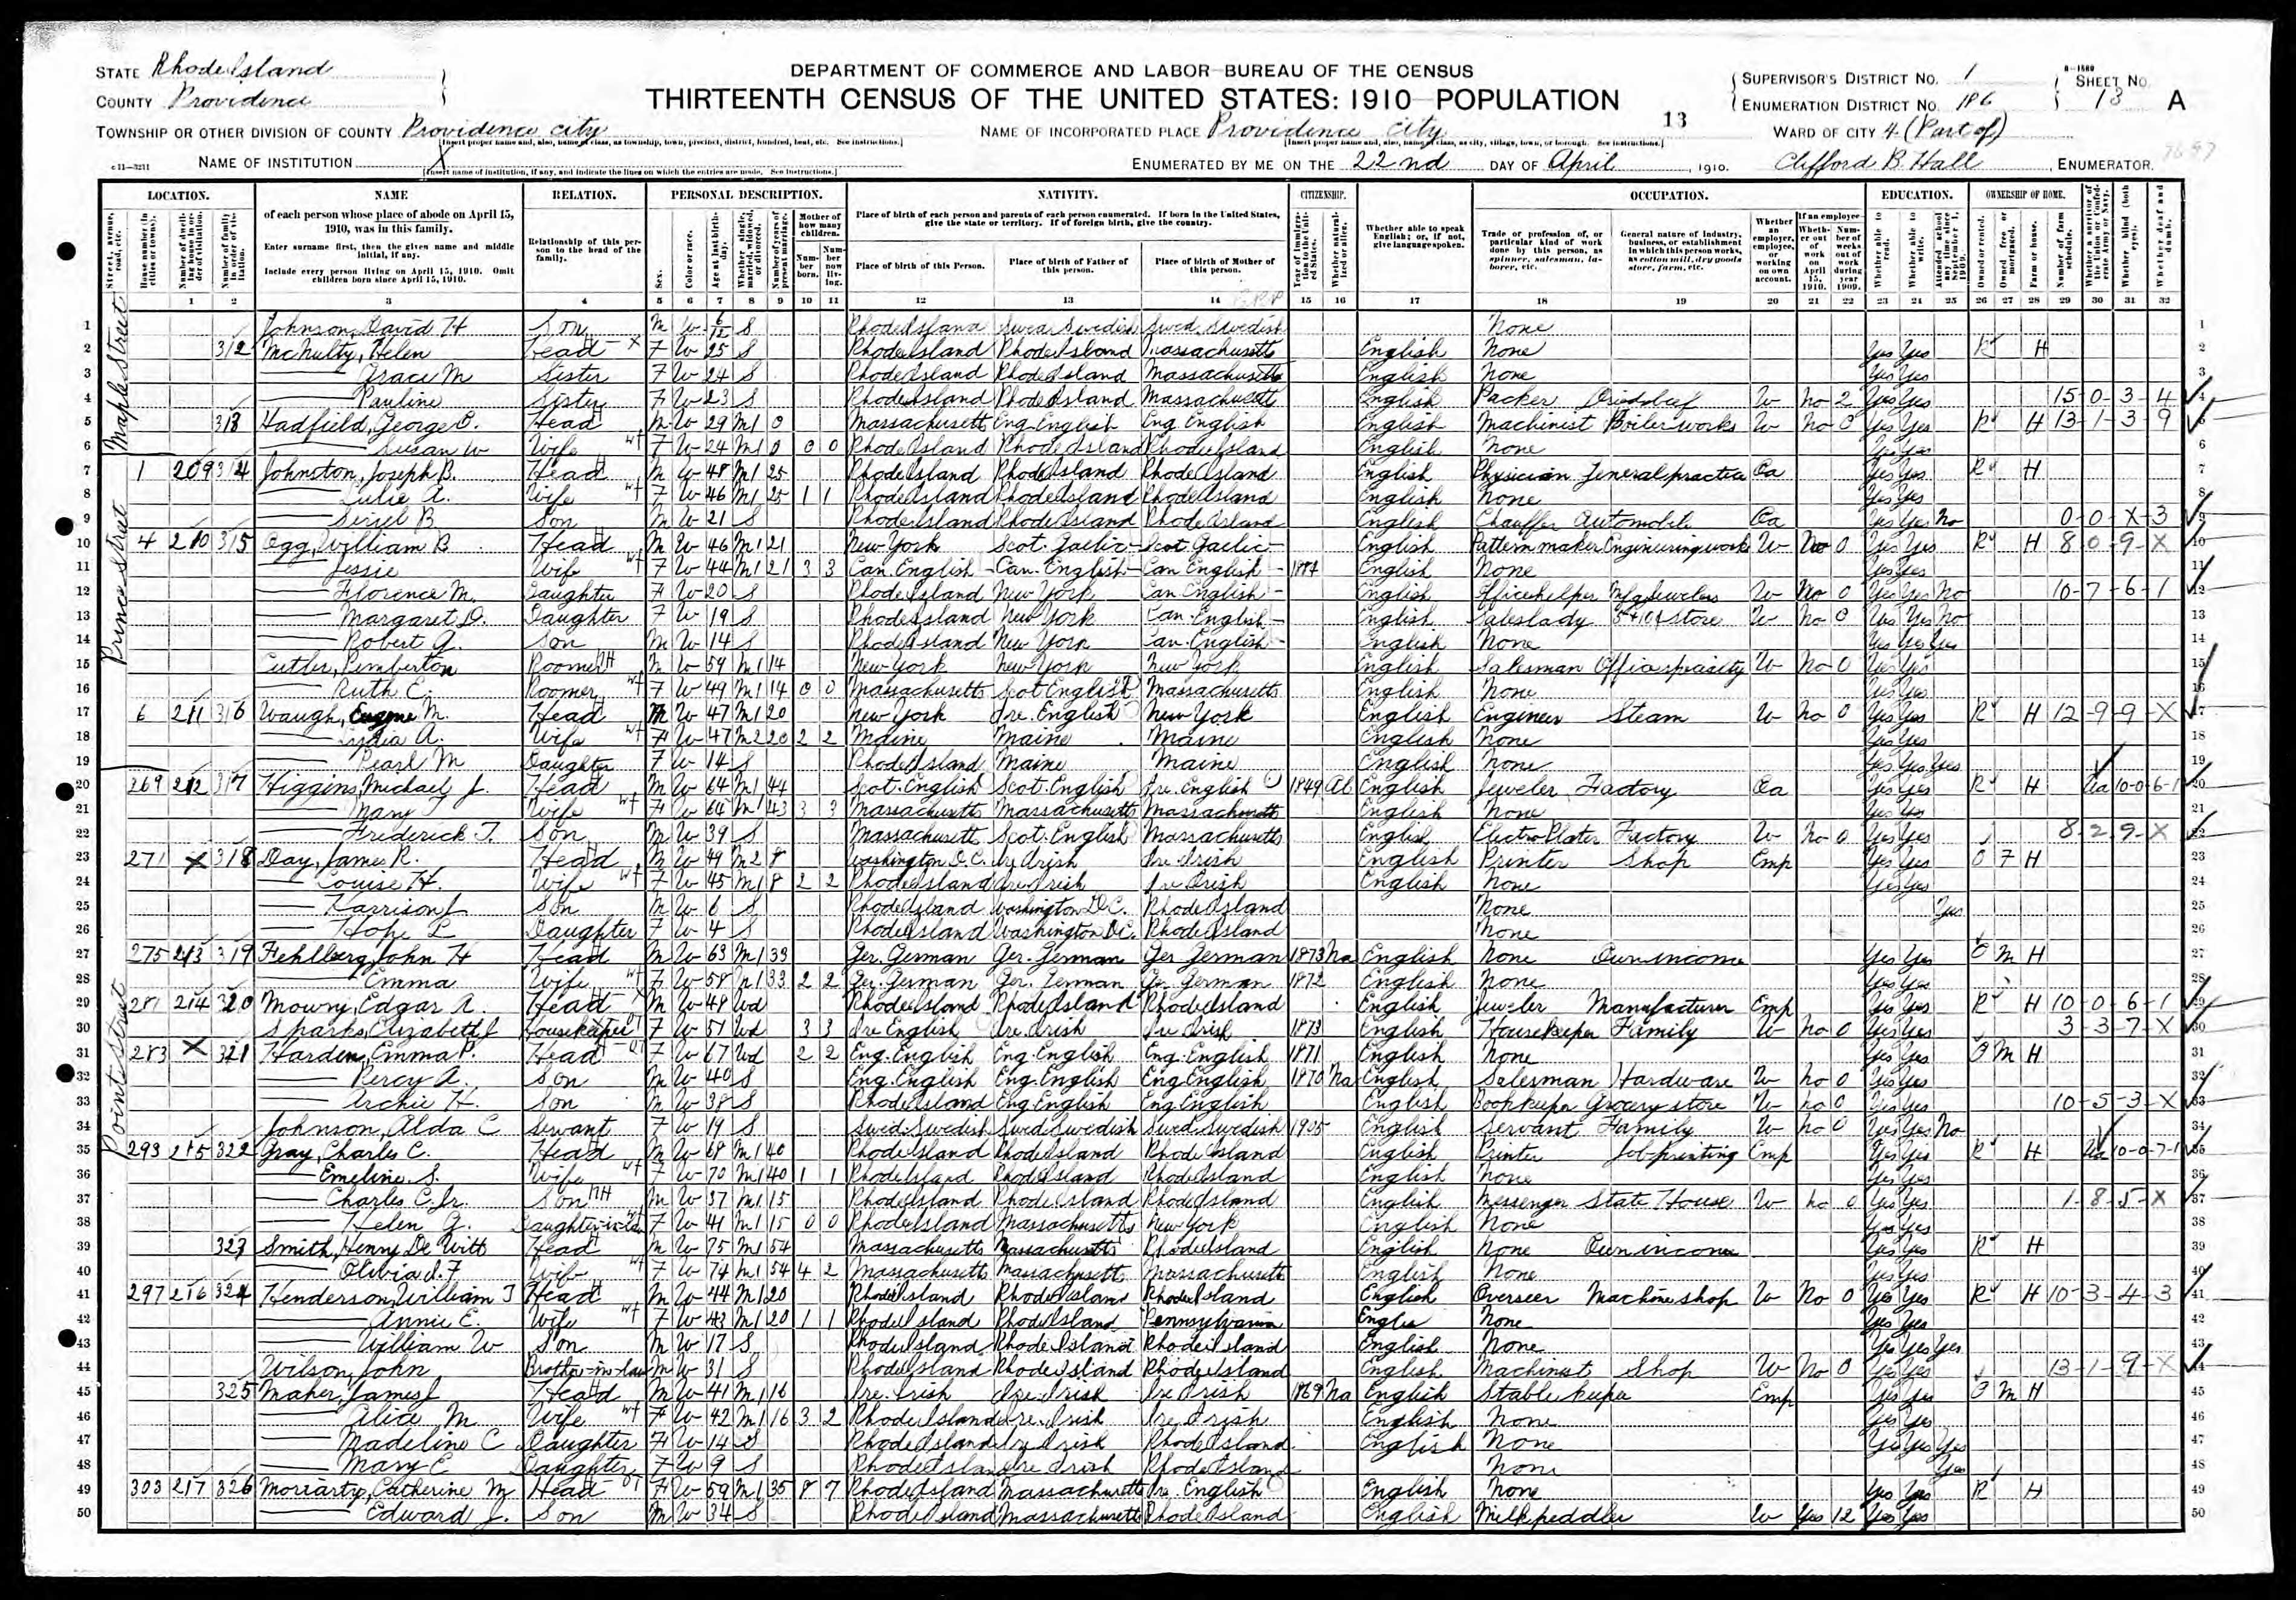 STATE Rhode Island
COUNTY Providence
DEPARTMENT OF COMMERCE AND LABOR—BUREAU OF THE CENSUS
THIRTEENTH CENSUS OF THE UNITED STATES: 1910—POPULATION
SUPERVISOR'S DISTRICT No. 1
ENUMERATION DISTRICT No. 186
SHEET No. 13 A
TOWNSHIP OR OTHER DIVISION OF COUNTY Providence city
NAME OF INCORPORATED PLACE Providence city
13
WARD OF CITY 4 (Part of)
NAME OF INSTITUTION X
ENUMERATED BY ME ON THE 22nd DAY OF April, 1910. Clifford B. Hall, ENUMERATOR.
LOCATION. NAME RELATION. PERSONAL DESCRIPTION. NATIVITY. CITIZENSHIP. OCCUPATION. EDUCATION. OWNERSHIP OF HOME.
of each person whose place of abode on April 15, 1910, was in this family.
Enter surname first, then the given name and middle initial, if any.
Include every person living on April 15, 1910. Omit children born since April 15, 1910.
Relationship of this person to the head of the family.
Place of birth of each person and parents of each person enumerated. If born in the United States, give the state or territory. If of foreign birth, give the country.
Place of birth of this Person. Place of birth of Father of this person. Place of birth of Mother of this person.
Whether able to speak English; or, if not, give language spoken.
1 2 3 4 5 6 7 8 9 10 11 12 13 14 15 16 17 18 19 20 21 22 23 24 25 26 27 28 29 30 31 32
Maple Street
Prince Street
Point Street
1 Johnson, David H Son M W 6/12 S Rhode Island Swed. Swedish Swed. Swedish None
2 312 McNulty, Helen Head F W 25 S Rhode Island Rhode Island Massachusetts English None Yes Yes R H
3 Grace M Sister F W 24 S Rhode Island Rhode Island Massachusetts English None Yes Yes
4 Pauline Sister F W 23 S Rhode Island Rhode Island Massachusetts English Packer Dried beef W No 2 Yes Yes 15-0-3-4
5 313 Hadfield, George Head M W 29 M1 0 Massachusetts Eng. English Eng. English English Machinist Boiler works W No 0 Yes Yes R H 13-1-3-9
6 Susan W Wife F W 24 M1 0 0 0 Rhode Island Rhode Island Rhode Island English None Yes Yes
7 1 209 314 Johnston, Joseph B. Head M W 48 M1 25 Rhode Island Rhode Island Rhode Island English Physician General practice Oa Yes Yes R H
8 Julie A. Wife F W 46 M1 25 1 1 Rhode Island Rhode Island Rhode Island English None Yes Yes
9 B Son M W 21 S Rhode Island Rhode Island Rhode Island English Chauffer Automobile Oa Yes Yes No 0-0-X-3
10 4 210 315 Ogg, William B Head M W 46 M1 21 New York Scot. Gaelic Scot. Gaelic English Pattern maker Engineering works W No 0 Yes Yes R H 8-0-9-X
11 Jessie Wife F W 44 M1 21 3 3 Can. English Can. English Can. English 1884 English None Yes Yes
12 Florence M. Daughter F W 20 S Rhode Island New York Can. English English Office helper Mfg Jewelers W No 0 Yes Yes No 10-7-6-1
13 Margaret D. Daughter F W 19 S Rhode Island New York Can. English English Saleslady 5+10¢ store W No 0 Yes Yes No
14 Robert G. Son M W 14 S Rhode Island New York Can. English English None Yes Yes Yes
15 Cutler, Pemberton Roomer M W 59 M1 14 New York New York New York English Salesman Office specialty W No 0 Yes Yes
16 Ruth E. Roomer F W 49 M1 14 0 0 Massachusetts Scot English Massachusetts English None Yes Yes
17 6 211 316 Waugh, Eugene M. Head M W 47 M1 20 New York Ire. English New York English Engineer Steam W No 0 Yes Yes R H 12-9-9-X
18 Lydia A. Wife F W 47 M2 20 2 2 Maine Maine Maine English None Yes Yes
19 Pearl M Daughter F W 14 S Rhode Island Maine Maine English None Yes Yes Yes
20 269 212 317 Higgins, Michael J. Head M W 64 M1 44 Scot. English Scot. English Ire. English 1849 Al English Jeweler Factory Oa Yes Yes R H Ua 10-0-6-1
21 Mary Wife F W 64 M1 43 3 3 Massachusetts Massachusetts Massachusetts English None Yes Yes
22 Frederick T. Son M W 39 S Massachusetts Scot. English Massachusetts English Electro Plater Factory W No 0 Yes Yes 8-2-9-X
23 271 X 318 Day, James R. Head M W 49 M2 8 Washington D.C. Ire Irish Ire. Irish English Printer Shop Emp Yes Yes O F H
24 Louise H. Wife F W 45 M1 8 2 2 Rhode Island Ire Irish Ire Irish English None Yes Yes
25 Harrison J Son M W 6 S Rhode Island Washington D.C. Rhode Island None Yes
26 Hope L Daughter F W 4 S Rhode Island Washington D.C. Rhode Island None
27 275 213 319 Fehlberg, John H Head M W 63 M1 33 Ger. German Ger. German Ger German 1873 Na English None Own income Yes Yes O M H
28 Emma Wife F W 58 M1 33 2 2 Ger. German Ger. German Ger. German 1872 English None Yes Yes
29 281 214 320 Mowry, Edgar A. Head M W 48 Wd Rhode Island Rhode Island Rhode Island English Jeweler Manufacturer Emp Yes Yes R H 10-0-6-1
30 Sparks, Elizabeth J Housekeeper F W 51 Wd 3 3 Ire English Ire. Irish Ire Irish 1873 English Housekeeper Family W No 0 Yes Yes 3-3-7-X
31 283 X 321 Harden, Emma P. Head F W 67 Wd 2 2 Eng. English Eng. English Eng. English 1871 English None Yes Yes O M H
32 Percy A. Son M W 40 S Eng. English Eng. English Eng. English 1870 Na English Salesman Hardware W No 0 Yes Yes
33 Archie H. Son M W 38 S Rhode Island Eng. English Eng. English English Bookkeeper Grocery store W No 0 Yes Yes 10-5-3-X
34 Johnson, Alda C Servant F W 19 S Swed. Swedish Swed. Swedish Swed. Swedish 1905 English Servant Family W No 0 Yes Yes No
35 293 215 322 Gray, Charles C. Head M W 68 M1 40 Rhode Island Rhode Island Rhode Island English Printer Job printing Emp Yes Yes R H Ua 10-0-7-1
36 Emeline S. Wife F W 70 M1 40 1 1 Rhode Island Rhode Island Rhode Island English None Yes Yes
37 Charles C. Jr. Son M W 37 M1 15 Rhode Island Rhode Island Rhode Island English Messenger State House W No 0 Yes Yes 1-8-5-X
38 Helen G. Daughter-in-law F W 41 M1 15 0 0 Rhode Island Massachusetts New York English None Yes Yes
39 323 Smith, Henry De Witt Head M W 75 M1 54 Massachusetts Massachusetts Rhode Island English None Own income Yes Yes R H
40 Olivia Wife F W 74 M1 54 4 2 Massachusetts Massachusetts Massachusetts English None Yes Yes
41 297 216 324 Henderson, William T Head M W 44 M1 20 Rhode Island Rhode Island Rhode Island English Overseer Machine shop W No 0 Yes Yes R H 10-3-4-3
42 Annie E. Wife F W 43 M1 20 1 1 Rhode Island Rhode Island Pennsylvania None Yes Yes
43 William W Son M W 17 S Rhode Island Rhode Island Rhode Island English None Yes Yes Yes
44 Wilson, John Brother-in-law M W 31 S Rhode Island Rhode Island Rhode Island English Machinist Shop W No 0 Yes Yes 13-1-9-X
45 325 Maher, James J Head M W 41 M1 16 Ire. Irish Ire. Irish Ire Irish 1869 Na English Stable keeper Emp Yes Yes O M H
46 Alice M. Wife F W 42 M1 16 3 2 Rhode Island Ire. Irish Ire Irish English None Yes Yes
47 Madeline C Daughter F W 14 S Rhode Island Ire Irish Rhode Island English None Yes Yes Yes
48 Mary E Daughter F W 9 S Rhode Island Ire Irish Rhode Island None Yes
49 303 217 326 Moriarty, Catherine M Head F W 59 M1 35 8 7 Rhode Island Massachusetts Ire. English English None Yes Yes R H
50 Edward J. Son M W 34 S Rhode Island Massachusetts Rhode Island English Milk peddler W Yes 12 Yes Yes